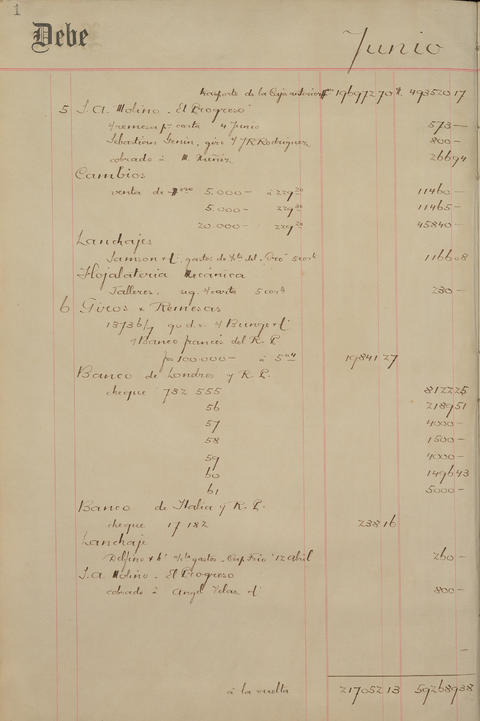 1
Debe Junio
trasporte de la Caja anterior 1969727 0 4935 20 17
5 S. A. Molino "El Progreso"
s/ remesa pr carta 4 Junio 573 —
Sebastian Genin, giro s/ J. R. Rodriguez 800 —
cobrado à M. Muñiz 266 94
Cambios
venta de $oro 5.000 — à 229 20 11460 —
5.000 — 229 30 11465 —
20.000 — 229 20 45840 —
Lanchajes
Samson & C. gastos de 5 cort 1166 08
Hojalateria Mecánica
Talleres. seg. s/ carta 5 corte 230 —
6 Giros & Remesas
1373 6/7 go d.v. s/ Bunge & C.
s/ Banco francés del R. P.
frs 100.000 — à 5 19841 27
Banco de Londres y R. P.
cheque 782 555 8122 25
56 2189 51
57 4000 —
58 1500 —
59 4000 —
60 1496 43
61 5000 —
Banco de Italia y R. P.
cheque 17 182 238 16
Lanchaje
Delfino & h. gastos "Cap Frio" 12 abril 260 —
S. A. Molino "El Progreso"
cobrado à Angel Velas 800 —
—
à la vuelta 217052 13 592689 38